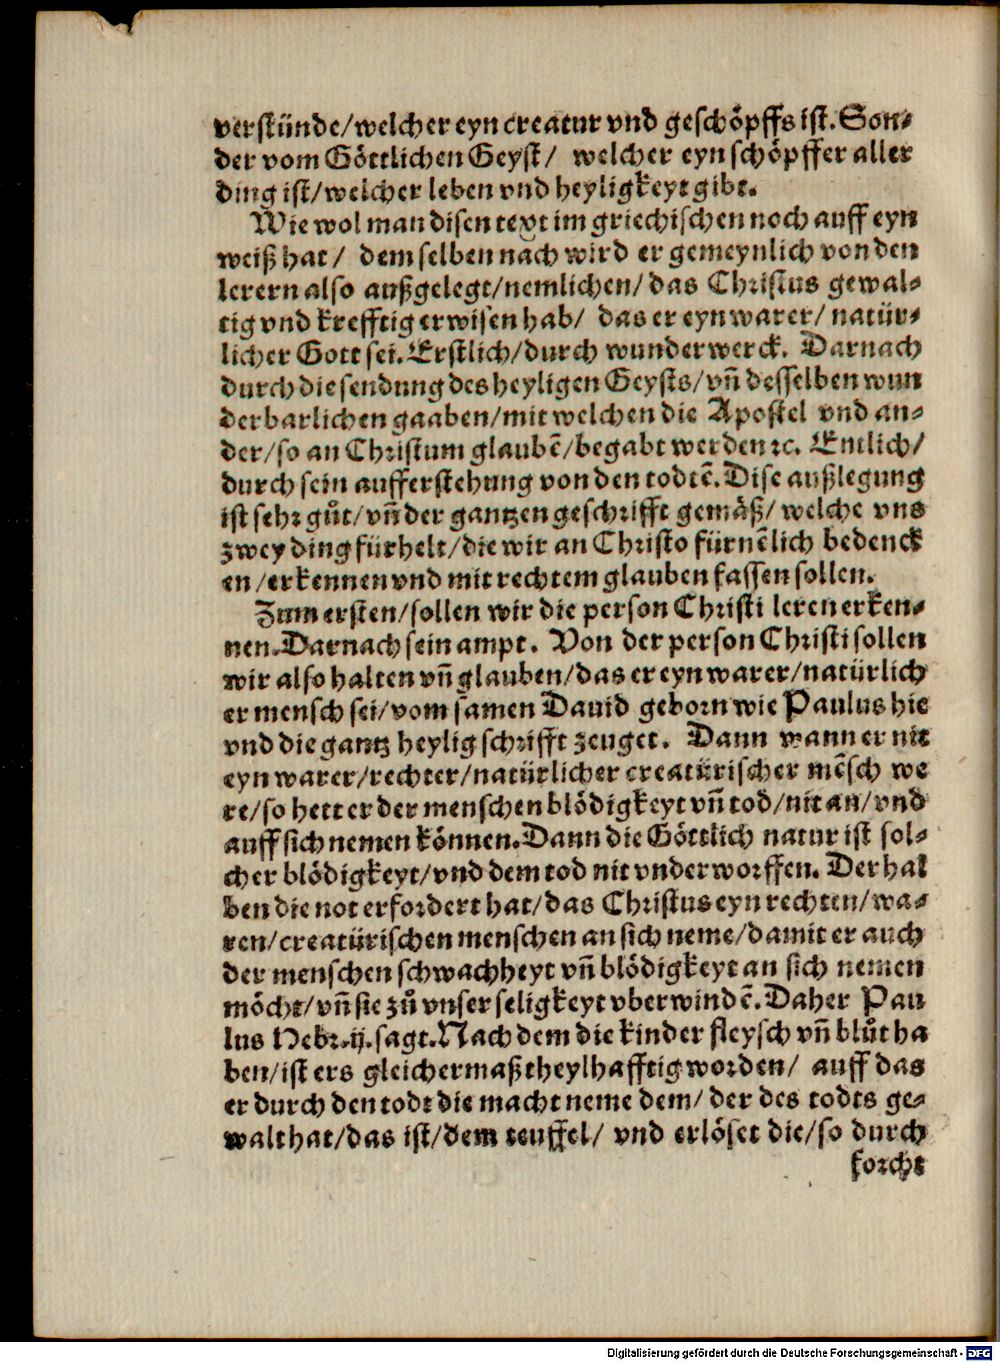 verstünde/welcher eyn creatur vnd geschöpffs ist. Son-
der vom Göttlichen Geyst/ welcher eyn schöpffer aller
ding ist/welcher leben vnd heyligkeyt gibt.
Wie wol man disen text im griechischen noch auff eyn
weiß hat/ dem selben nach wird er gemeynlich von den
lerern also außgelegt/nemlichen/das Christus gewal-
tig vnd krefftig erwisen hab/ das er eyn warer/ natür-
licher Gott sei. Erstlich/durch wunderwerck. Darnach
durch die sendung des heyligen Geysts/vn̄ desselben wun
derbarlichen gaaben/mit welchen die Apostel vnd an-
der/so an Christum glaubē/begabt werden ꝛc. Entlich/
durch sein aufferstehung von den todtē. Dise außlegung
ist sehr gůt/vn̄ der gantzen geschrifft gemäß/ welche vns
zwey ding fürhelt/die wir an Christo fürnēlich bedenck
en/erkennen vnd mit rechtem glauben fassen sollen.
Zum ersten/sollen wir die person Christi leren erken-
nen. Darnach sein ampt. Von der person Christi sollen
wir also halten vn̄ glauben/das er eyn warer/natürlich
er mensch sei/vom samen Dauid geborn wie Paulus hie
vnd die gantz heylig schrifft zeuget. Dann wann er nit
eyn warer/rechter/natürlicher creatürischer mēsch we
re/so hett er der menschen blödigkeyt vn̄ tod/nit an/vnd
auff sich nemen können. Dann die Göttlich natur ist sol-
cher blödigkeyt/vnd dem tod nit vnderworffen. Der hal
ben die not erfordert hat/das Christus eyn rechten/wa-
ren/creatürischen menschen an sich neme/damit er auch
der menschen schwachheyt vn̄ blödigkeyt an sich nemen
möcht/vn̄ sie zů vnser seligkeyt vberwindē. Daher Pau
lus Hebr. ij. sagt. Nach dem die kinder fleysch vn̄ blůt ha
ben/ist ers gleichermaß theylhafftig worden/ auff das
er durch den todt die macht neme dem/ der des todts ge-
walt hat/das ist/dem teuffel/ vnd erlöset die/so durch
forcht
Digitalisierung gefördert durch die Deutsche Forschungsgemeinschaft - DFG